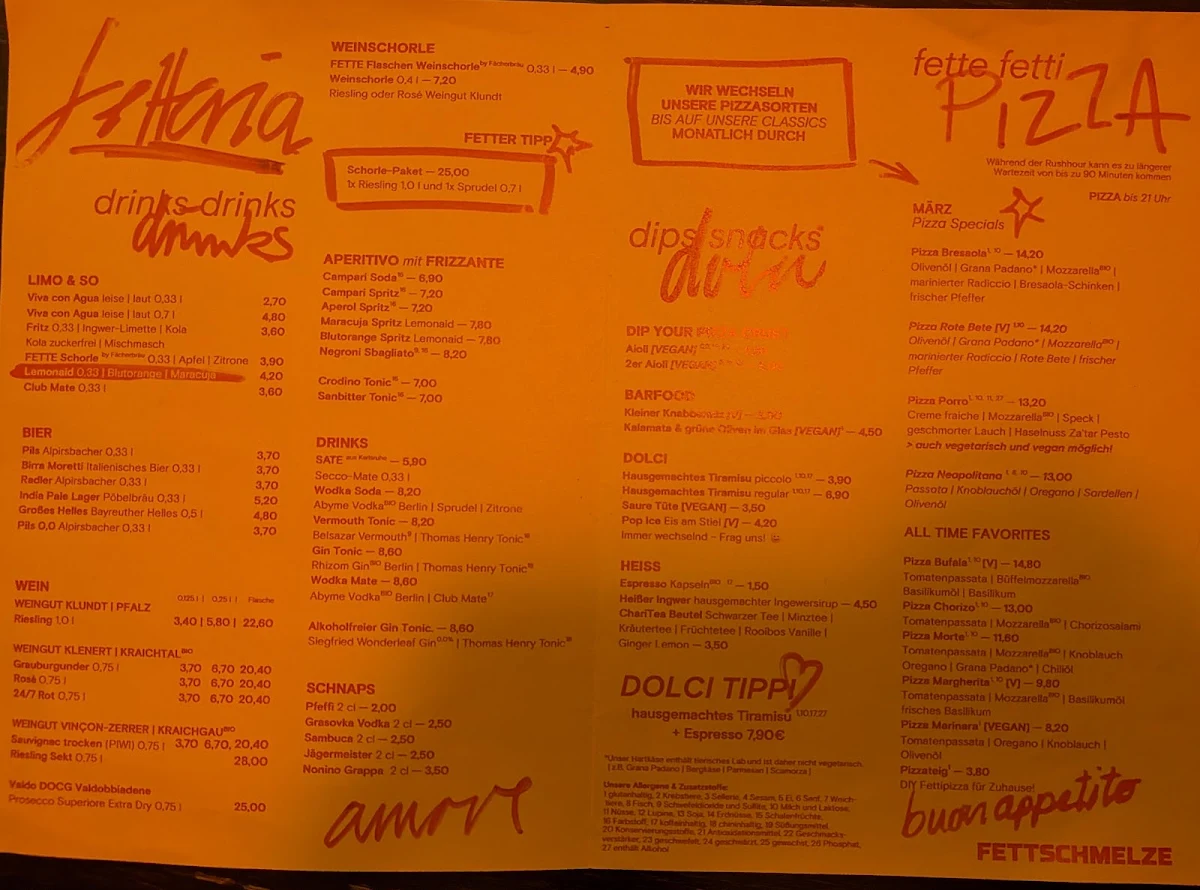 fetteria
drinks drinks
drinks
LIMO & SO
Viva con Agua leise | laut 0,33 l 2,70
Viva con Agua leise | laut 0,7 l 4,80
Fritz 0,33 | Ingwer-Limette | Kola 3,60
Kola zuckerfrei | Mischmasch
FETTE Schorle by Fächerbräu 0,33 l | Apfel | Zitrone 3,90
Lemonaid 0,33 | Blutorange | Maracuja 4,20
Club Mate 0,33 l 3,60
BIER
Pils Alpirsbacher 0,33 l 3,70
Birra Moretti Italienisches Bier 0,33 l 3,70
Radler Alpirsbacher 0,33 l 3,70
India Pale Lager Pöbelbräu 0,33 l 5,20
Großes Helles Bayreuther Helles 0,5 l 4,80
Pils 0,0 Alpirsbacher 0,33 l 3,70
WEIN
0,125 l | 0,25 l | Flasche
WEINGUT KLUNDT | PFALZ
Riesling 1,0 l 3,40 | 5,80 | 22,60
WEINGUT KLENERT | KRAICHTAL BIO
Grauburgunder 0,75 l 3,70 6,70 20,40
Rosé 0,75 l 3,70 6,70 20,40
24/7 Rot 0,75 l 3,70 6,70 20,40
WEINGUT VINÇON-ZERRER | KRAICHGAU BIO
Sauvignac trocken (PIWI) 0,75 l 3,70 6,70, 20,40
Riesling Sekt 0,75 l 28,00
Valdo DOCG Valdobbiadene
Prosecco Superiore Extra Dry 0,75 l 25,00
WEINSCHORLE
FETTE Flaschen Weinschorle by Fächerbräu 0,33 l — 4,90
Weinschorle 0,4 l — 7,20
Riesling oder Rosé Weingut Klundt
FETTER TIPP
Schorle-Paket — 25,00
1x Riesling 1,0 l und 1x Sprudel 0,7 l
APERITIVO mit FRIZZANTE
Campari Soda — 6,90
Campari Spritz — 7,20
Aperol Spritz — 7,20
Maracuja Spritz Lemonaid — 7,80
Blutorange Spritz Lemonaid — 7,80
Negroni Sbagliato — 8,20
Crodino Tonic — 7,00
Sanbitter Tonic — 7,00
DRINKS
SATE aus Karlsruhe — 5,90
Secco-Mate 0,33 l
Wodka Soda — 8,20
Abyme Vodka BIO Berlin | Sprudel | Zitrone
Vermouth Tonic — 8,20
Belsazar Vermouth | Thomas Henry Tonic
Gin Tonic — 8,60
Rhizom Gin BIO Berlin | Thomas Henry Tonic
Wodka Mate — 8,60
Abyme Vodka BIO Berlin | Club Mate 17
Alkoholfreier Gin Tonic. — 8,60
Siegfried Wonderleaf Gin 0.0% | Thomas Henry Tonic
SCHNAPS
Pfeffi 2 cl — 2,00
Grasovka Vodka 2 cl — 2,50
Sambuca 2 cl — 2,50
Jägermeister 2 cl — 2,50
Nonino Grappa 2 cl — 3,50
amore
WIR WECHSELN
UNSERE PIZZASORTEN
BIS AUF UNSERE CLASSICS
MONATLICH DURCH
dips snacks
dolci
DIP YOUR
Aioli [VEGAN]
2er Aioli [VEGAN]
BARFOOD
Kleiner [V] —
Kalamata & grüne Oliven im Glas [VEGAN] — 4,50
DOLCI
Hausgemachtes Tiramisu piccolo 1,10,17 — 3,90
Hausgemachtes Tiramisu regular 1,10,17 — 6,90
Saure Tüte [VEGAN] — 3,50
Pop Ice Eis am Stiel [V] — 4,20
Immer wechselnd – Frag uns!
HEISS
Espresso Kapseln BIO 17 — 1,50
Heißer Ingwer hausgemachter Ingwersirup — 4,50
ChariTea Beutel Schwarzer Tee | Minztee |
Kräutertee | Früchtetee | Rooibos Vanille |
Ginger Lemon — 3,50
DOLCI TIPP!
hausgemachtes Tiramisu 1,10,17,27
+ Espresso 7,90€
*Unser Hartkäse enthält tierisches Lab und ist daher nicht vegetarisch.
[ z.B. Grana Padano | Bergkäse | Parmesan | Scamorza ]
Unsere Allergene & Zusatzstoffe:
1 glutenhaltig, 2 Krebstiere, 3 Sellerie, 4 Sesam, 5 Ei, 6 Senf, 7 Weich-
tiere, 8 Fisch, 9 Schwefeldioxide und Sulfite, 10 Milch und Laktose,
11 Nüsse, 12 Lupine, 13 Soja, 14 Erdnüsse, 15 Schalenfrüchte,
16 Farbstoff, 17 koffeinhaltig, 18 chininhaltig, 19 Süßungsmittel,
20 Konservierungsstoffe, 21 Antioxidationsmittel, 22 Geschmacks-
verstärker, 23 geschwefelt, 24 geschwärzt, 25 gewachst, 26 Phosphat,
27 enthält Alkohol
fette fetti
PIZZA
Während der Rushhour kann es zu längerer
Wartezeit von bis zu 90 Minuten kommen
PIZZA bis 21 Uhr
MÄRZ
Pizza Specials
Pizza Bresaola 1, 10 — 14,20
Olivenöl | Grana Padano* | Mozzarella BIO |
marinierter Radiccio | Bresaola-Schinken |
frischer Pfeffer
Pizza Rote Bete [V] 1,10 — 14,20
Olivenöl | Grana Padano* | Mozzarella BIO |
marinierter Radiccio | Rote Bete | frischer
Pfeffer
Pizza Porro 1, 10, 11, 27 — 13,20
Creme fraiche | Mozzarella BIO | Speck |
geschmorter Lauch | Haselnuss Za'tar Pesto
> auch vegetarisch und vegan möglich!
Pizza Neapolitana 1, 8, 10 — 13,00
Passata | Knoblauchöl | Oregano | Sardellen |
Olivenöl
ALL TIME FAVORITES
Pizza Bufala 1, 10 [V] — 14,80
Tomatenpassata | Büffelmozzarella BIO
Basilikumöl | Basilikum
Pizza Chorizo 1, 10 — 13,00
Tomatenpassata | Mozzarella BIO | Chorizosalami
Pizza Morte 1, 10 — 11,60
Tomatenpassata | Mozzarella BIO | Knoblauch
Oregano | Grana Padano* | Chiliöl
Pizza Margherita 1, 10 [V] — 9,80
Tomatenpassata | Mozzarella BIO | Basilikumöl
frisches Basilikum
Pizza Marinara 1 [VEGAN] — 8,20
Tomatenpassata | Oregano | Knoblauch |
Olivenöl
Pizzateig 1 — 3,80
DIY Fettipizza für Zuhause!
buon appetito
FETTSCHMELZE